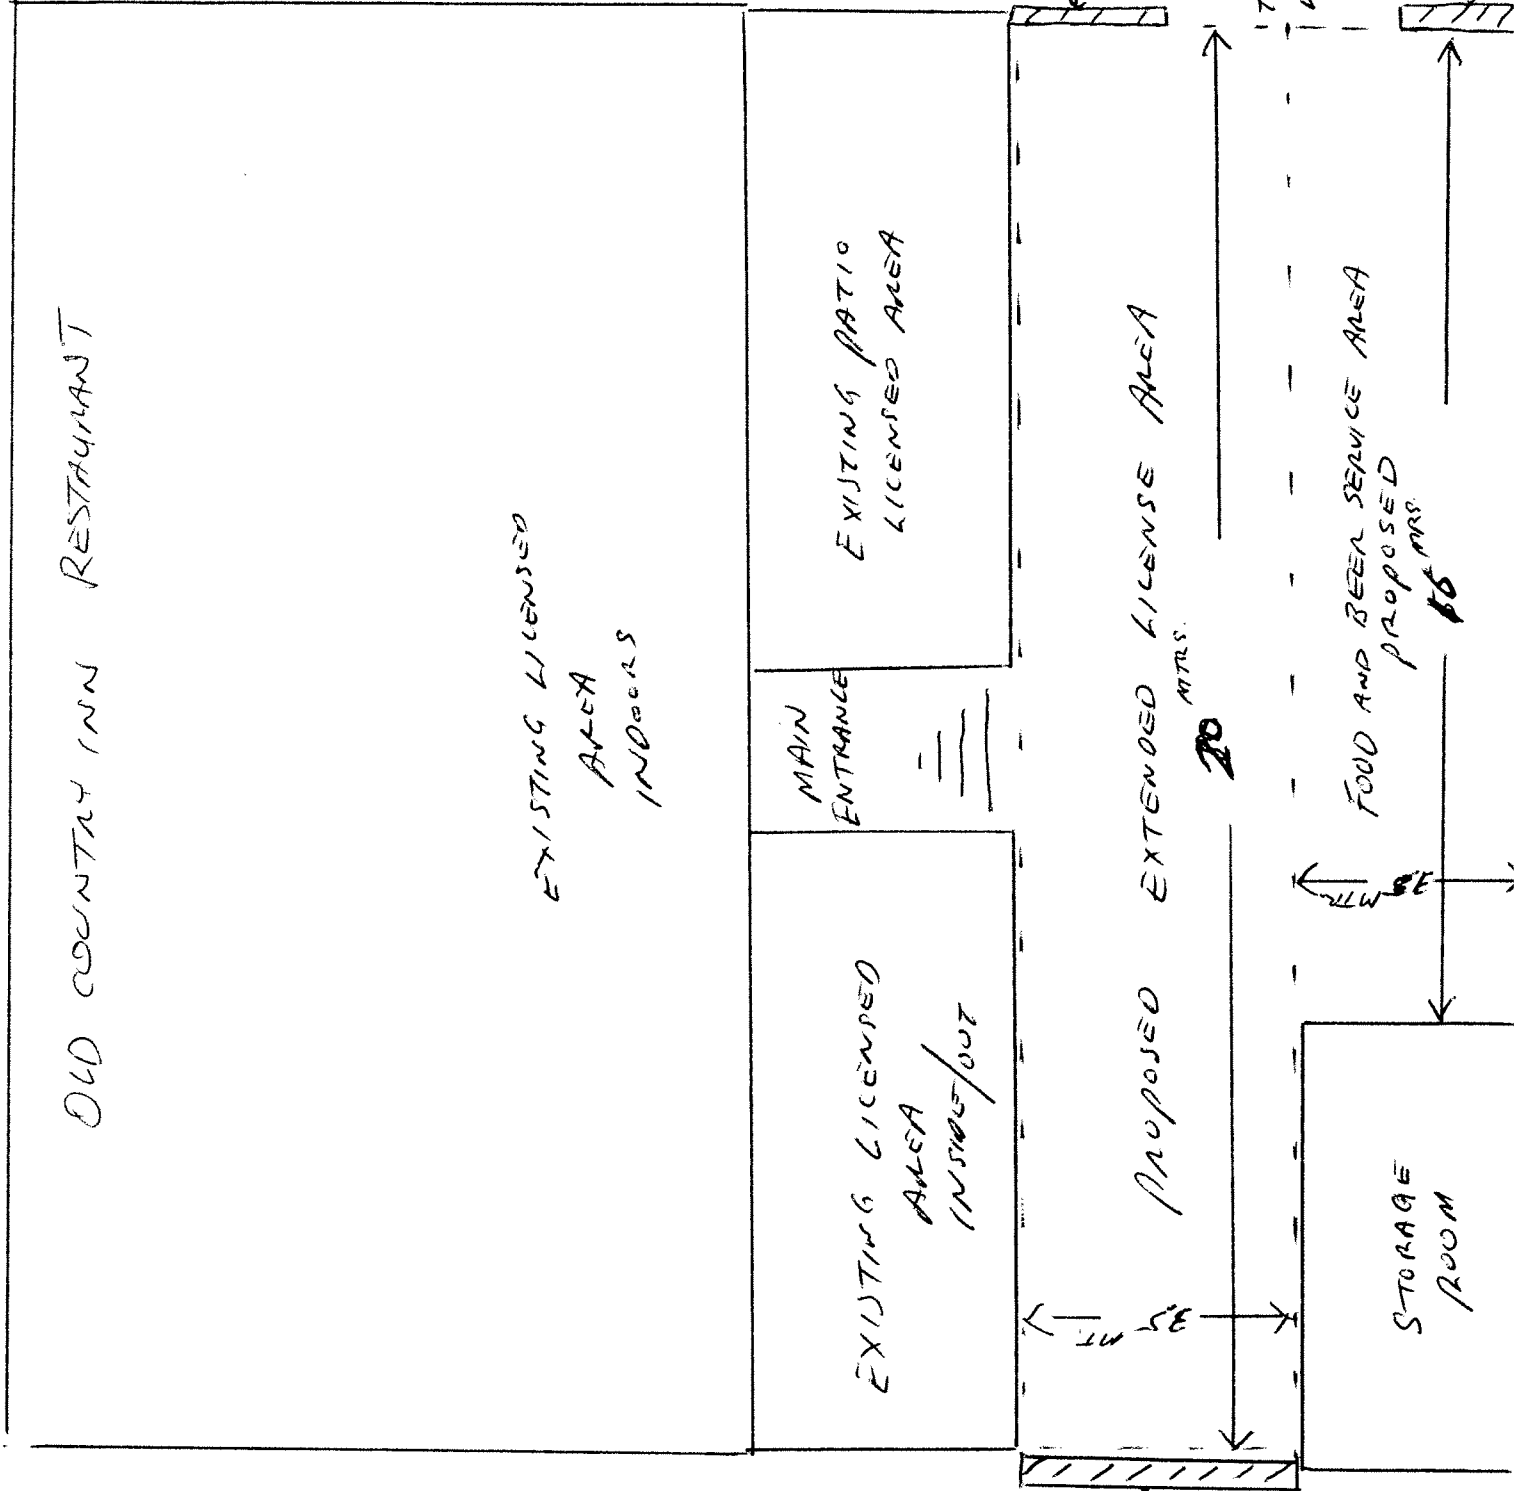 OLD COUNTRY INN RESTAURANT
EXISTING LICENSED
AREA
INDOORS
EXISTING LICENSED
AREA
INSIDE/OUT
MAIN
ENTRANCE
EXISTING PATIO
LICENSED AREA
PROPOSED EXTENDED LICENSE AREA
20 MTRS.
3.5 MT.
FOOD AND BEER SERVICE AREA
PROPOSED
MRS.
MTR
STORAGE
ROOM